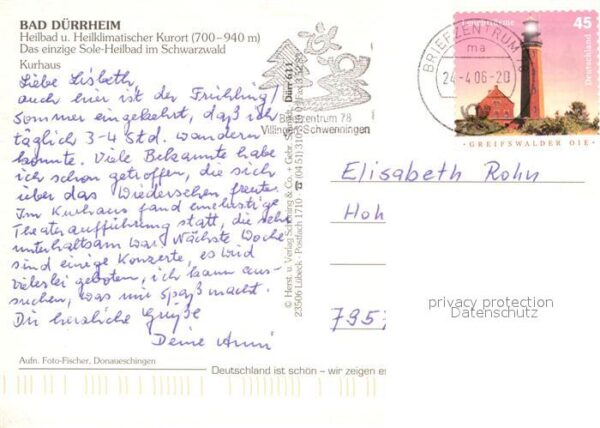 BAD DÜRRHEIM
Heilbad u. Heilklimatischer Kurort (700–940 m)
Das einzige Sole-Heilbad im Schwarzwald
Kurhaus
Liebe Lisbeth
auch hier ist der Frühling/
Sommer eingekehrt, daß ich
täglich 3-4 Std. wandern
konnte. Viele Bekannte habe
ich schon getroffen, die sich
über das Wiedersehen freuten.
Im Kurhaus fand eine lustige
Theateraufführung statt, die sehr
unterhaltsam war. Nächste Woche
sind einige Konzerte, es wird
vielerlei geboten, ich kann aus-
suchen, was mir Spaß macht.
Dir herzliche Grüße
Deine Anni
Aufn. Foto-Fischer, Donaueschingen
© Herst. u. Verlag Schöning & Co. + Gebr. Schmidt
23506 Lübeck · Postfach 1710 · ☎ (04 51) 3 10
Dürr 611
Briefzentrum 78
Villingen-Schwenningen
BRIEFZENTRUM 78
ma
24-4.06-20
Leuchttürme
45
Deutschland
GREIFSWALDER OIE
Elisabeth Rohn
Hoh
7957
privacy protection
Datenschutz
Deutschland ist schön – wir zeigen es